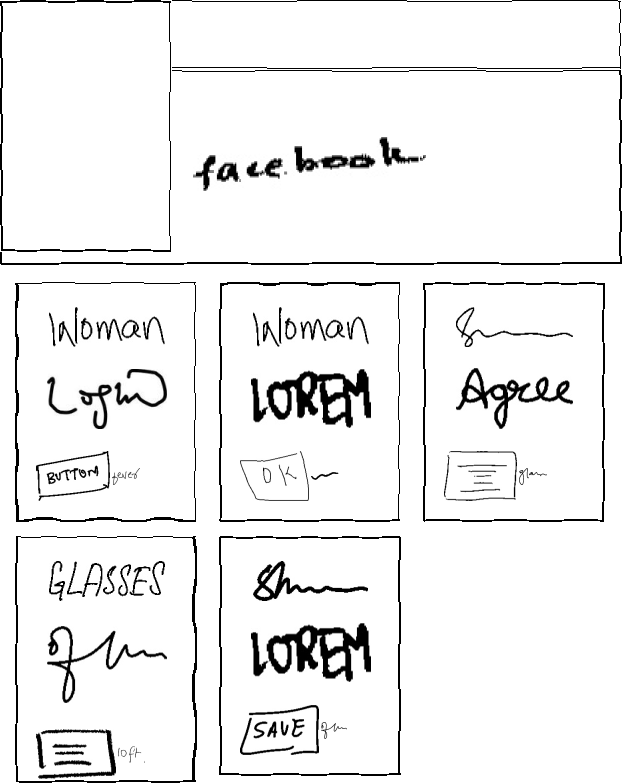 facebook
Woman
Login
BUTTON fever
Woman
LOREM
OK
Agree
glam
GLASSES
loft
LOREM
SAVE